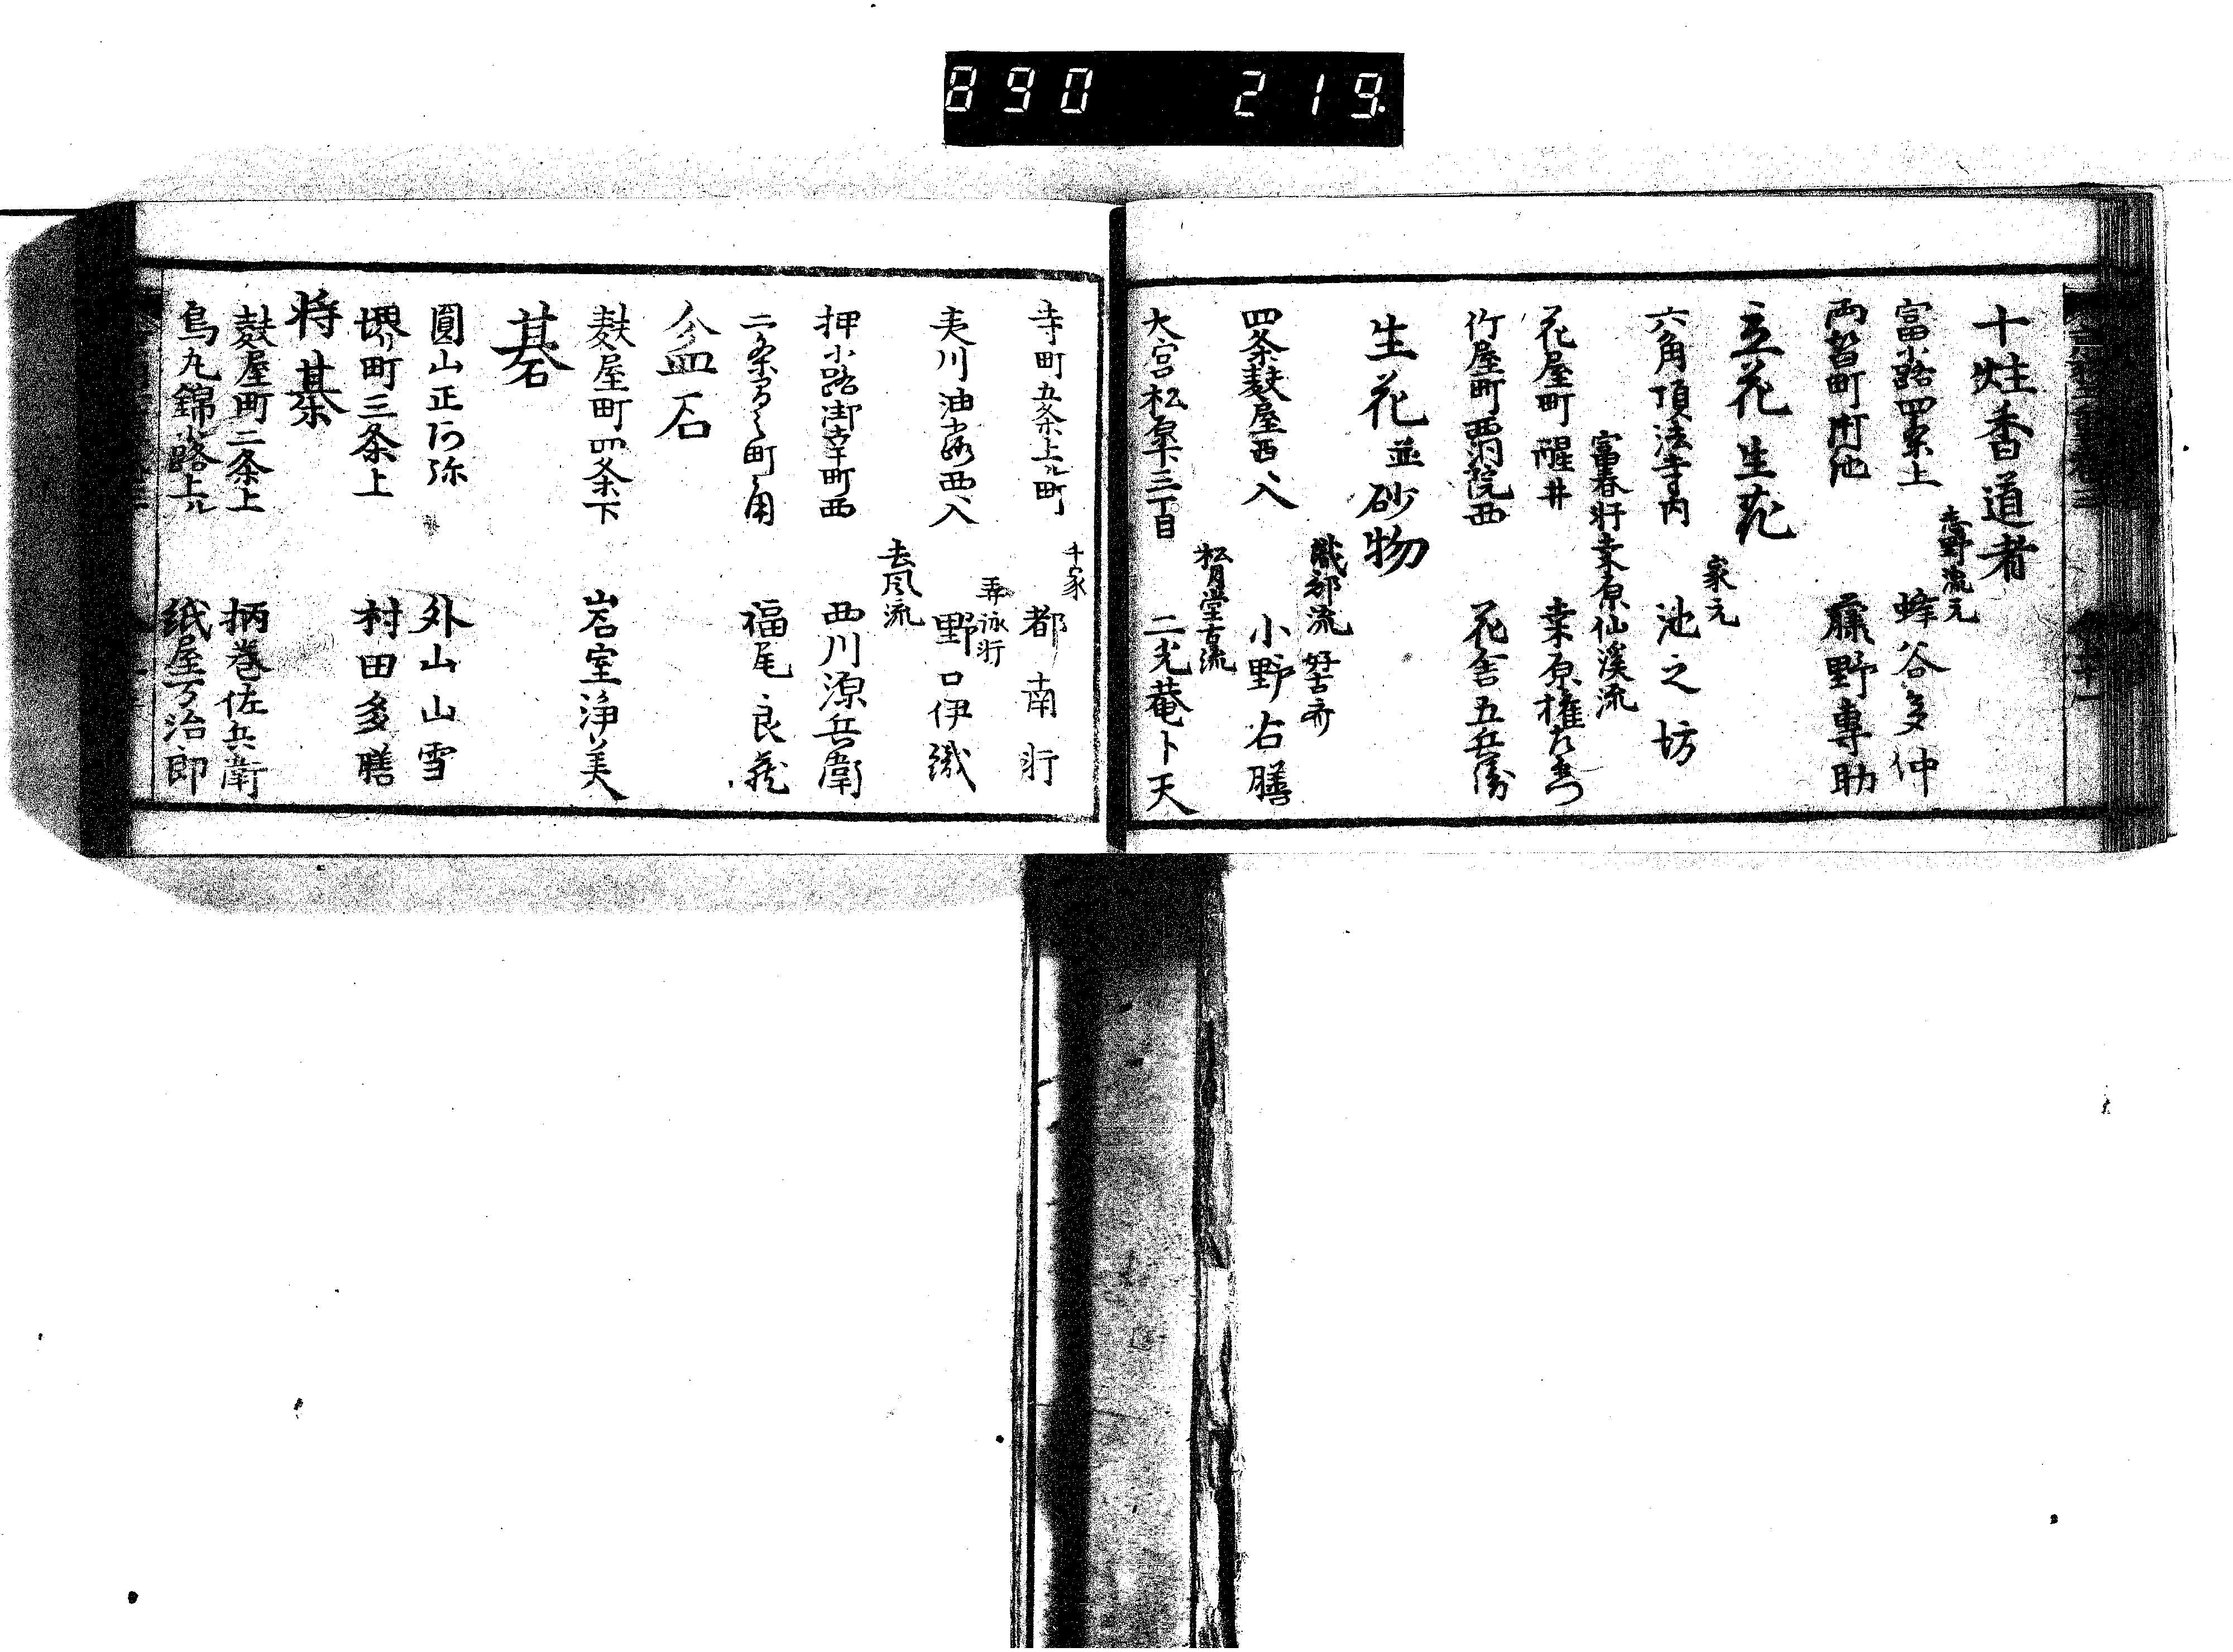 890 219
十炷香道者
志野流元
富小路四条上 蜂谷多仲
両替町御池 藤野專助
立花生花
家元
六角頂法寺内 池之坊
富春軒桒原仙溪流
花屋町醒井 桒原権左衛門
竹屋町西洞院西 花舎五兵衛
生花並砂物
織部流
四条麩屋西入 小野右膳
松月堂古流
大宮松原下三丁目 二光菴卜天
千家
寺町五条上ル町 都南軒
弄詠軒
夷川油小路西入 野口伊織
去風流
押小路御幸町西 西川源兵衛
二条 町角 福尾良蔵
盆石
麩屋町四条下 岩室浄美
碁
圓山正阿弥 外山山雪
堺町三条上 村田多膳
将棊
麩屋町二条上 柄巻佐兵衛
烏丸錦小路上ル 紙屋万治郎